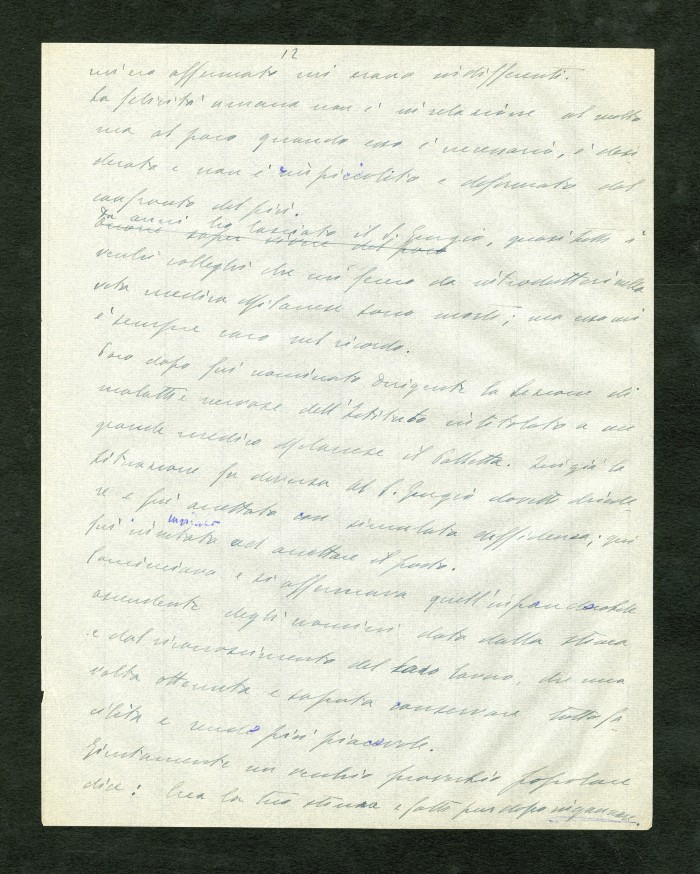 12
mi ero affermato mi erano indifferenti.
La felicità umana non è in relazione al molto
ma al poco quando esso è necessario, è desi
derato e non è rimpicciolito e deformato dal
confronto del più.
Da anni ho lasciato il S. Giorgio, quasi tutti i
vecchi colleghi che mi fecero da introduttori nella
vita medica Milanese sono morti; ma essi mi
è sempre caro nel ricordo.
Poco dopo fui nominato dirigente la Sezione di
malattie nervose dell'Istituto intitolato a un
grande medico Milanese il Palletta. Quì già la
situazione fu diversa al S. Giorgio dovetti chiede-
re e fui accettato con simulata diffidenza; qui
fui invitato ad accettare il posto.
Cominciava e si affermava quell'
ascendente degli uomini dato dalla stima
e dal riconoscimento del loro lavoro, che una
volta ottenuta e saputa conservare tutto fa-
cilita e rende più piacevole.
Giustamente un vecchio proverbio popolare
dice: Crea la tua stima e fatti pur dopo